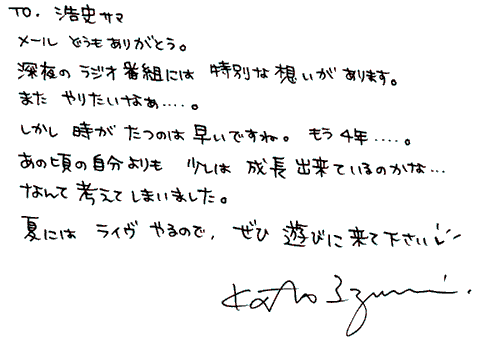 TO. 浩史サマ
メール どうもありがとう。
深夜のラジオ番組には 特別な想いがあります。
また やりたいなぁ‥‥。
しかし 時が たつのは 早いですね。 もう4年‥‥。
あの頃の自分よりも 少しは 成長出来ているのかな…
なんて 考えてしまいました。
夏には ライヴ やるので, ぜひ 遊びに来て下さい
Kato Izumi.